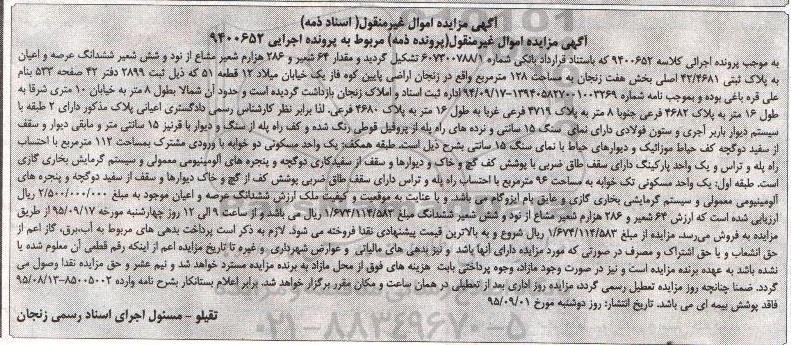 آگهی مزایده اموال غیرمنقول( اسناد ذمه)
آگهی مزایده اموال غیرمنقول(پرونده ذمه) مربوط به پرونده اجرایی ۹۴۰۰۶۵۲
به موجب پرونده اجرائی کلاسه ۹۴۰۰۶۵۲ که باستناد قرارداد بانکی شماره ۶۰۷۳۰۰۷۸۸/۱ تشکیل گردید و مقدار ۶۴ شعیر و ۲۸۶ هزارم شعیر مشاع از نود و شش شعیر ششدانگ عرصه و اعیان
به پلاک ثبتی ۴۲/۴۶۸۱ اصلی بخش هفت زنجان به مساحت ۱۲۸ مترمربع واقع در زنجان اراضی پایین کوه فاز یک خیابان میلاد ۱۲ قطعه ۵۱ که ذیل ثبت ۲۸۹۹ دفتر ۴۲ صفحه ۵۳۳ بنام
علی قره باغی بوده و بموجب نامه شماره ۱۳۹۴۰۵۸۲۷۰۰۱۰۰۳۲۶۹-۹۴/۰۹/۱۷ اداره ثبت اسناد و املاک زنجان بازداشت گردیده است و حدود آن شمالا بطول ۸ متر به خیابان ۱۰ متری شرقا به
طول ۱۶ متر به پلاک ۴۶۸۲ فرعی جنوبا ۸ متر به پلاک ۴۷۱۹ فرعی غربا به طول ۱۶ متر به پلاک ۴۶۸۰ فرعی. لذا برابر نظر کارشناس رسمی دادگستری اعیانی پلاک مذکور دارای ۲ طبقه با
سیستم دیوار باربر آجری و ستون فولادی دارای نمای سنگ ۱۵ سانتی و نرده های راه پله از پروفیل قوطی رنگ شده و کف راه پله از سنگ و دیوار با قرنیز ۱۵ سانتی متر و مابقی دیوار و سقف
از سفید دوگچه کف حیاط موزائیک و دیوارهای حیاط با نمای سنگ ۱۵ سانتی بشرح ذیل است. طبقه همکف: یک واحد مسکونی دو خوابه با ورودی مشترک بمساحت ۱۱۲ مترمربع با احتساب
راه پله و تراس و یک واحد پارکینگ دارای سقف طاق ضربی با پوشش کف گچ و خاک و دیوارها و سقف از سفیدکاری دوگچه و پنجره های آلومینیومی معمولی و سیستم گرمایش بخاری گازی
است. طبقه اول: یک واحد مسکونی تک خوابه به مساحت ۹۶ مترمربع با احتساب راه پله و تراس دارای سقف طاق ضربی پوشش کف از گچ و خاک دیوارها و سقف از سفید دوگچه و پنجره های
آلومینیومی معمولی و سیستم گرمایشی بخاری گازی و عایق بام ایزوگام می باشد. و با عنایت به موقعیت و کیفیت ملک ارزش ششدانگ عرصه و اعیان موجود به مبلغ ۲/۵۰۰/۰۰۰/۰۰۰ ریال
ارزیابی شده است که ارزش ۶۴ شعیر و ۲۸۶ هزارم شعیر مشاع از نود و شش شعیر ششدانگ مبلغ ۱/۶۷۴/۱۱۴/۵۸۳ ریال می باشد و از ساعت ۹ الی ۱۲ روز چهارشنبه مورخه ۹۵/۰۹/۱۷ از طریق
مزایده به فروش می‌رسد. مزایده از مبلغ ۱/۶۷۴/۱۱۴/۵۸۳ ریال شروع و به بالاترین قیمت پیشنهادی نقدا فروخته می شود. لازم به ذکر است پرداخت بدهی های مربوط به آب،برق، گاز اعم از
حق انشعاب و یا حق اشتراک و مصرف در صورتی که مورد مزایده دارای آنها باشد و نیز بدهی های مالیاتی و عوارض شهرداری و غیره تا تاریخ مزایده اعم از اینکه رقم قطعی آن معلوم شده یا
نشده باشد به عهده برنده مزایده است و نیز در صورت وجود مازاد، وجوه پرداختی بابت هزینه های فوق از محل مازاد به برنده مزایده مسترد خواهد شد و نیم عشر و حق مزایده نقدا وصول می
گردد. ضمنا چنانچه روز مزایده تعطیل رسمی گردد، مزایده روز اداری بعد از تعطیلی در همان ساعت و مکان مقرر برگزار خواهد شد. برابر اعلام بستانکار بشرح نامه وارده ۸۵۰۰۵۰۰۲-۹۵/۰۸/۱۳
فاقد پوشش بیمه ای می باشد. تاریخ انتشار: روز دوشنبه مورخ ۹۵/۰۹/۰۱
تقیلو - مسئول اجرای اسناد رسمی زنجان
۰۲۱-۸۸۳۴۹۶۷۰-۵